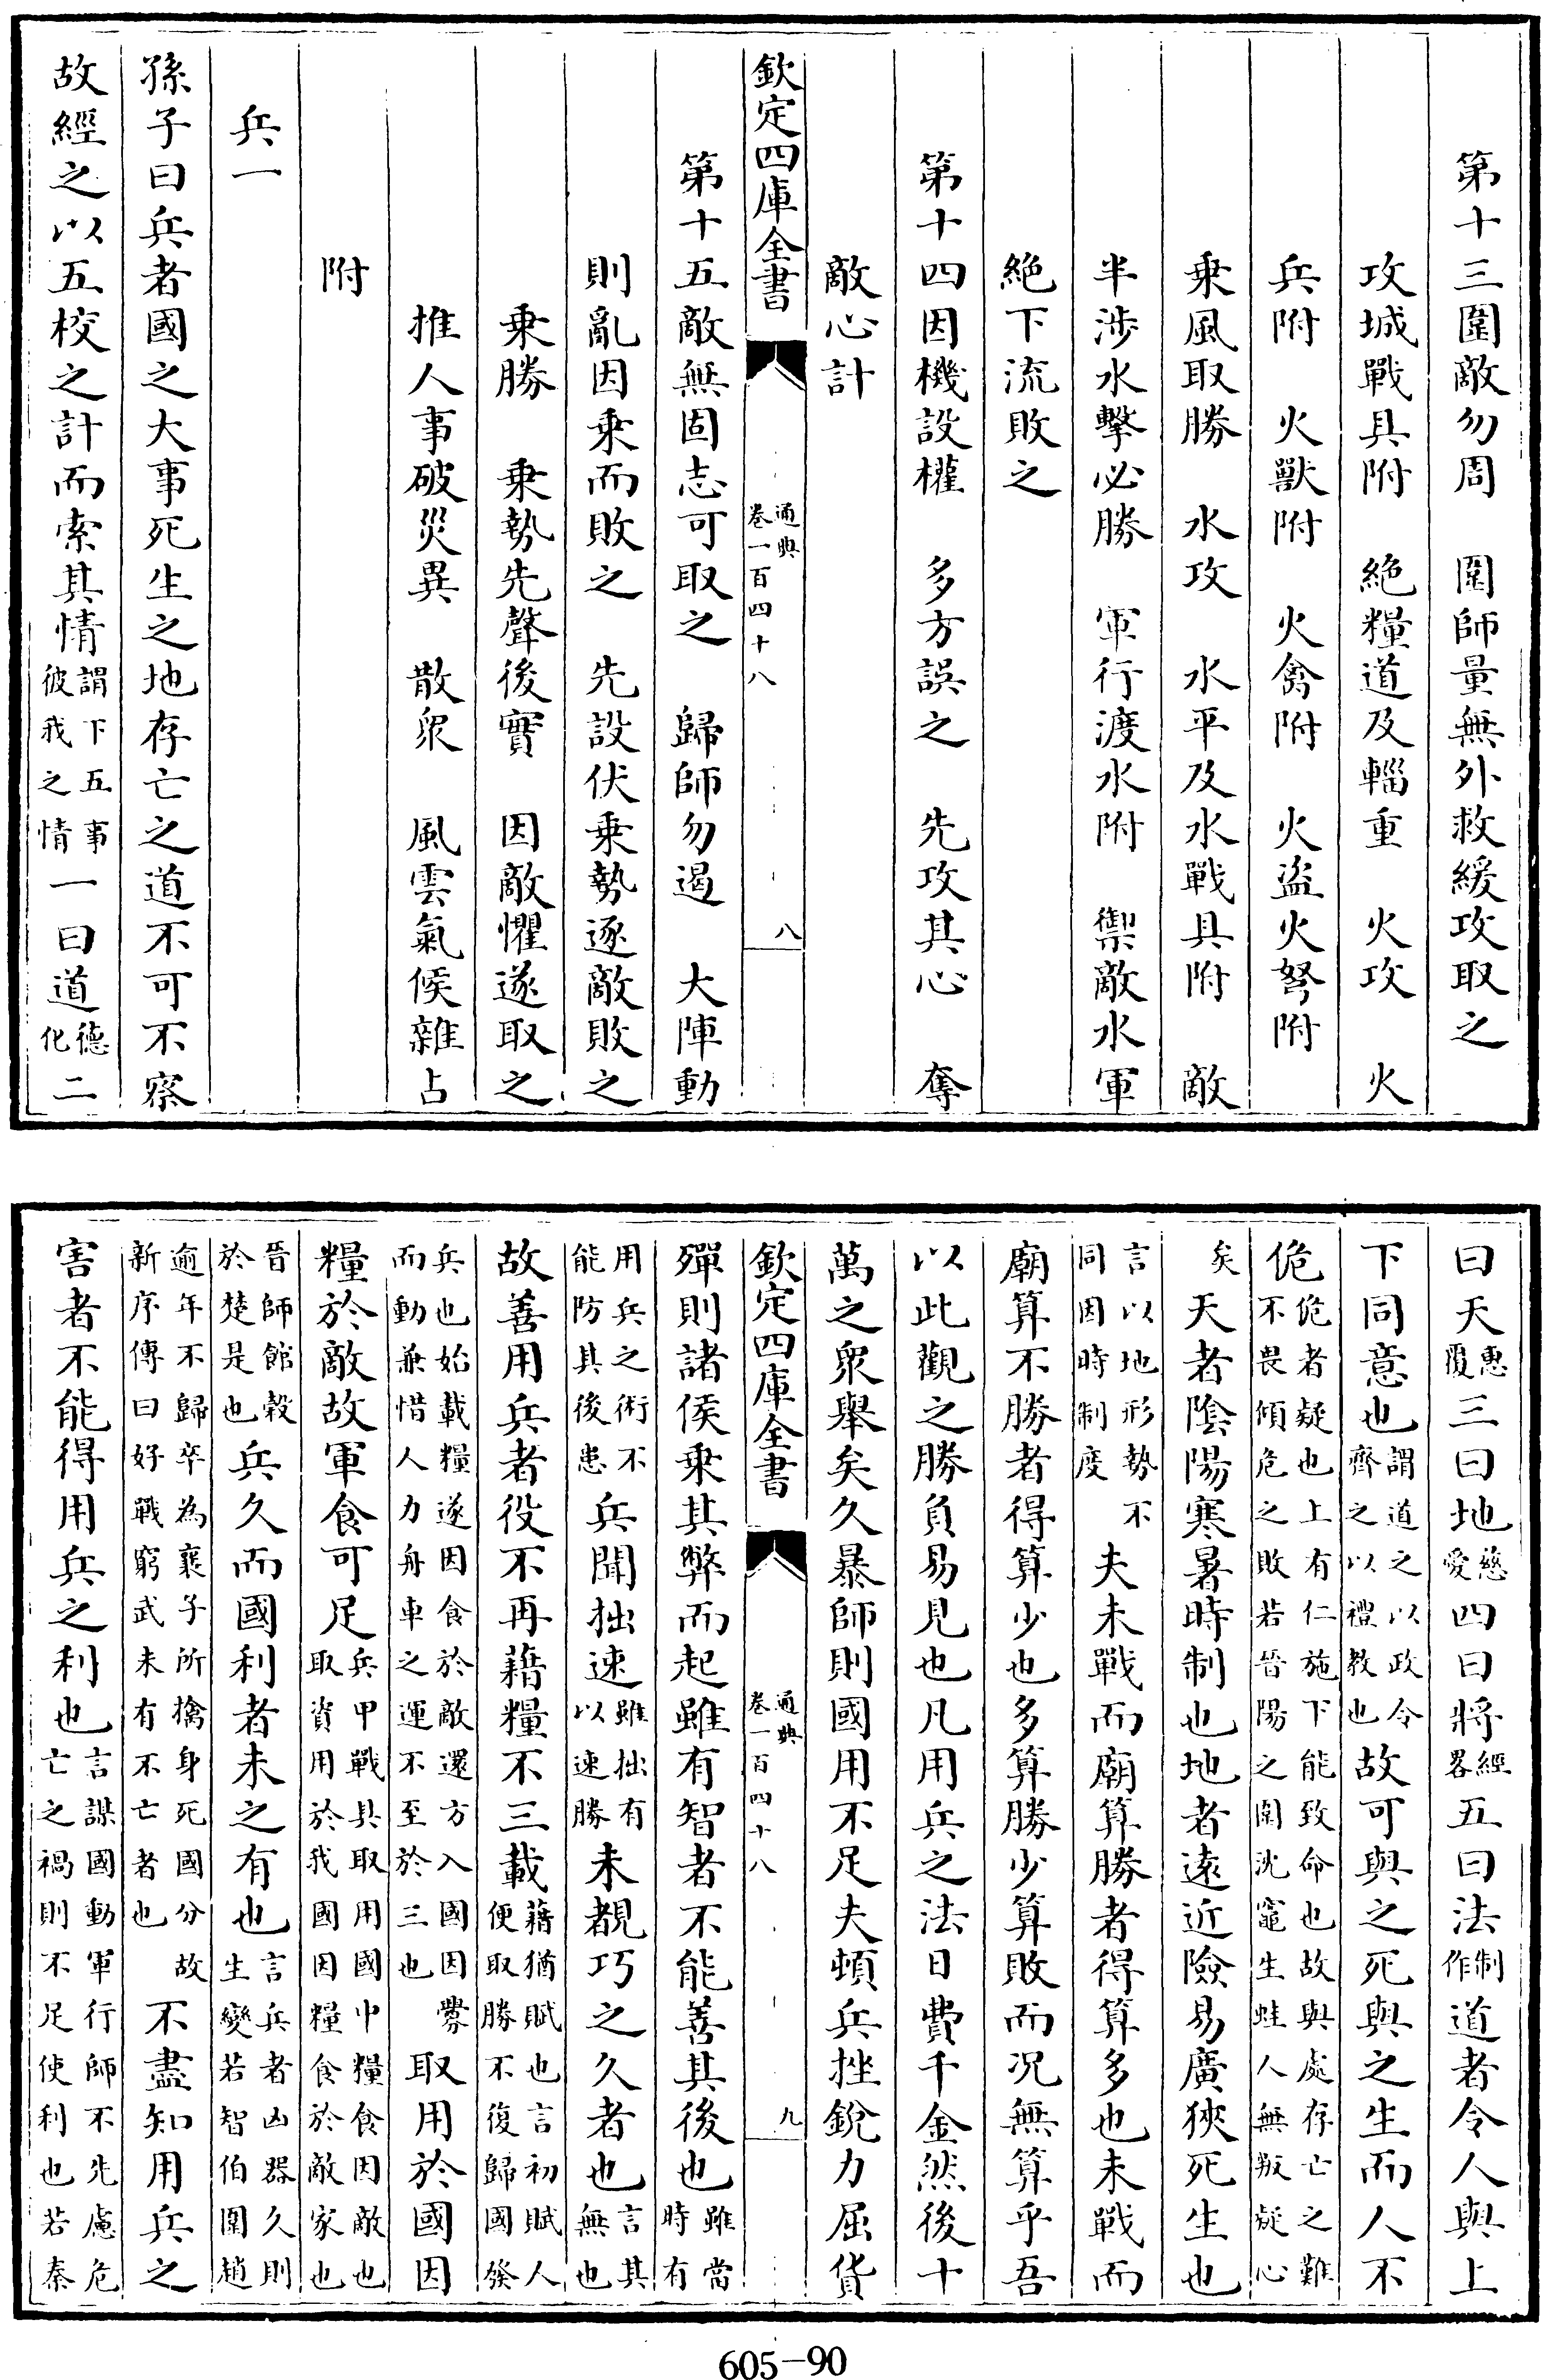 第十三圍敵勿周　圍師量無外救緩攻取之
攻城戰具附　絶糧道及輜重　火攻　火
兵附　火獸附　火禽附　火盜火弩附
乗風取勝　水攻　水平及水戰具附　敵
半渉水擊必勝　軍行渡水附　禦敵水軍
絶下流敗之
第十四因機設權　多方誤之　先攻其心　奪
敵心計
欽定四庫全書　通典卷一百四十八　八
第十五敵無固志可取之　歸師勿遏　大陣動
則亂因乗而敗之　先設伏乗勢逐敵敗之
乗勝　乗勢先聲後實　因敵懼遂取之
推人事破災異　散衆　風雲氣候雜占
附
兵一
孫子曰兵者國之大事死生之地存亡之道不可不察
故經之以五校之計而索其情謂下五事彼我之情一曰道德化二
曰天惠覆三曰地慈愛四曰將經畧五曰法制作道者令人與上
下同意也謂道之以政令齊之以禮教也故可與之死與之生而人不
佹佹者疑也上有仁施下能致命也故與處存亡之難不畏傾危之敗若晉陽之圍沈竈生蛙人無叛疑心
矣天者隂陽寒暑時制也地者遠近險易廣狹死生也
言以地形勢不同因時制度夫未戰而廟算勝者得算多也未戰而
廟算不勝者得算少也多算勝少算敗而况無算乎吾
以此觀之勝負易見也凡用兵之法日費千金然後十
萬之衆舉矣久暴師則國用不足夫頓兵挫銳力屈貨
欽定四庫全書　通典卷一百四十八　九
殫則諸侯乗其弊而起雖有智者不能善其後也雖當時有
用兵之術不能防其後患兵聞拙速雖拙有以速勝未覩巧之久者也言其無也
故善用兵者役不再藉糧不三載藉猶賦也言初賦人便取勝不復歸國發
兵也始載糧遂因食於敵還方入國因釁而動兼惜人力舟車之運不至於三也取用於國因
糧於敵故軍食可足兵甲戰具取用國中糧食因敵也取資用於我國因糧食於敵家也
晉師館穀於楚是也兵久而國利者未之有也言兵者凶器久則生變若智伯圍趙
逾年不歸卒為襄子所擒身死國分故新序傳曰好戰窮武未有不亡者也不盡知用兵之
害者不能得用兵之利也言謀國動軍行師不先慮危亡之禍則不足使利也若秦
605-90